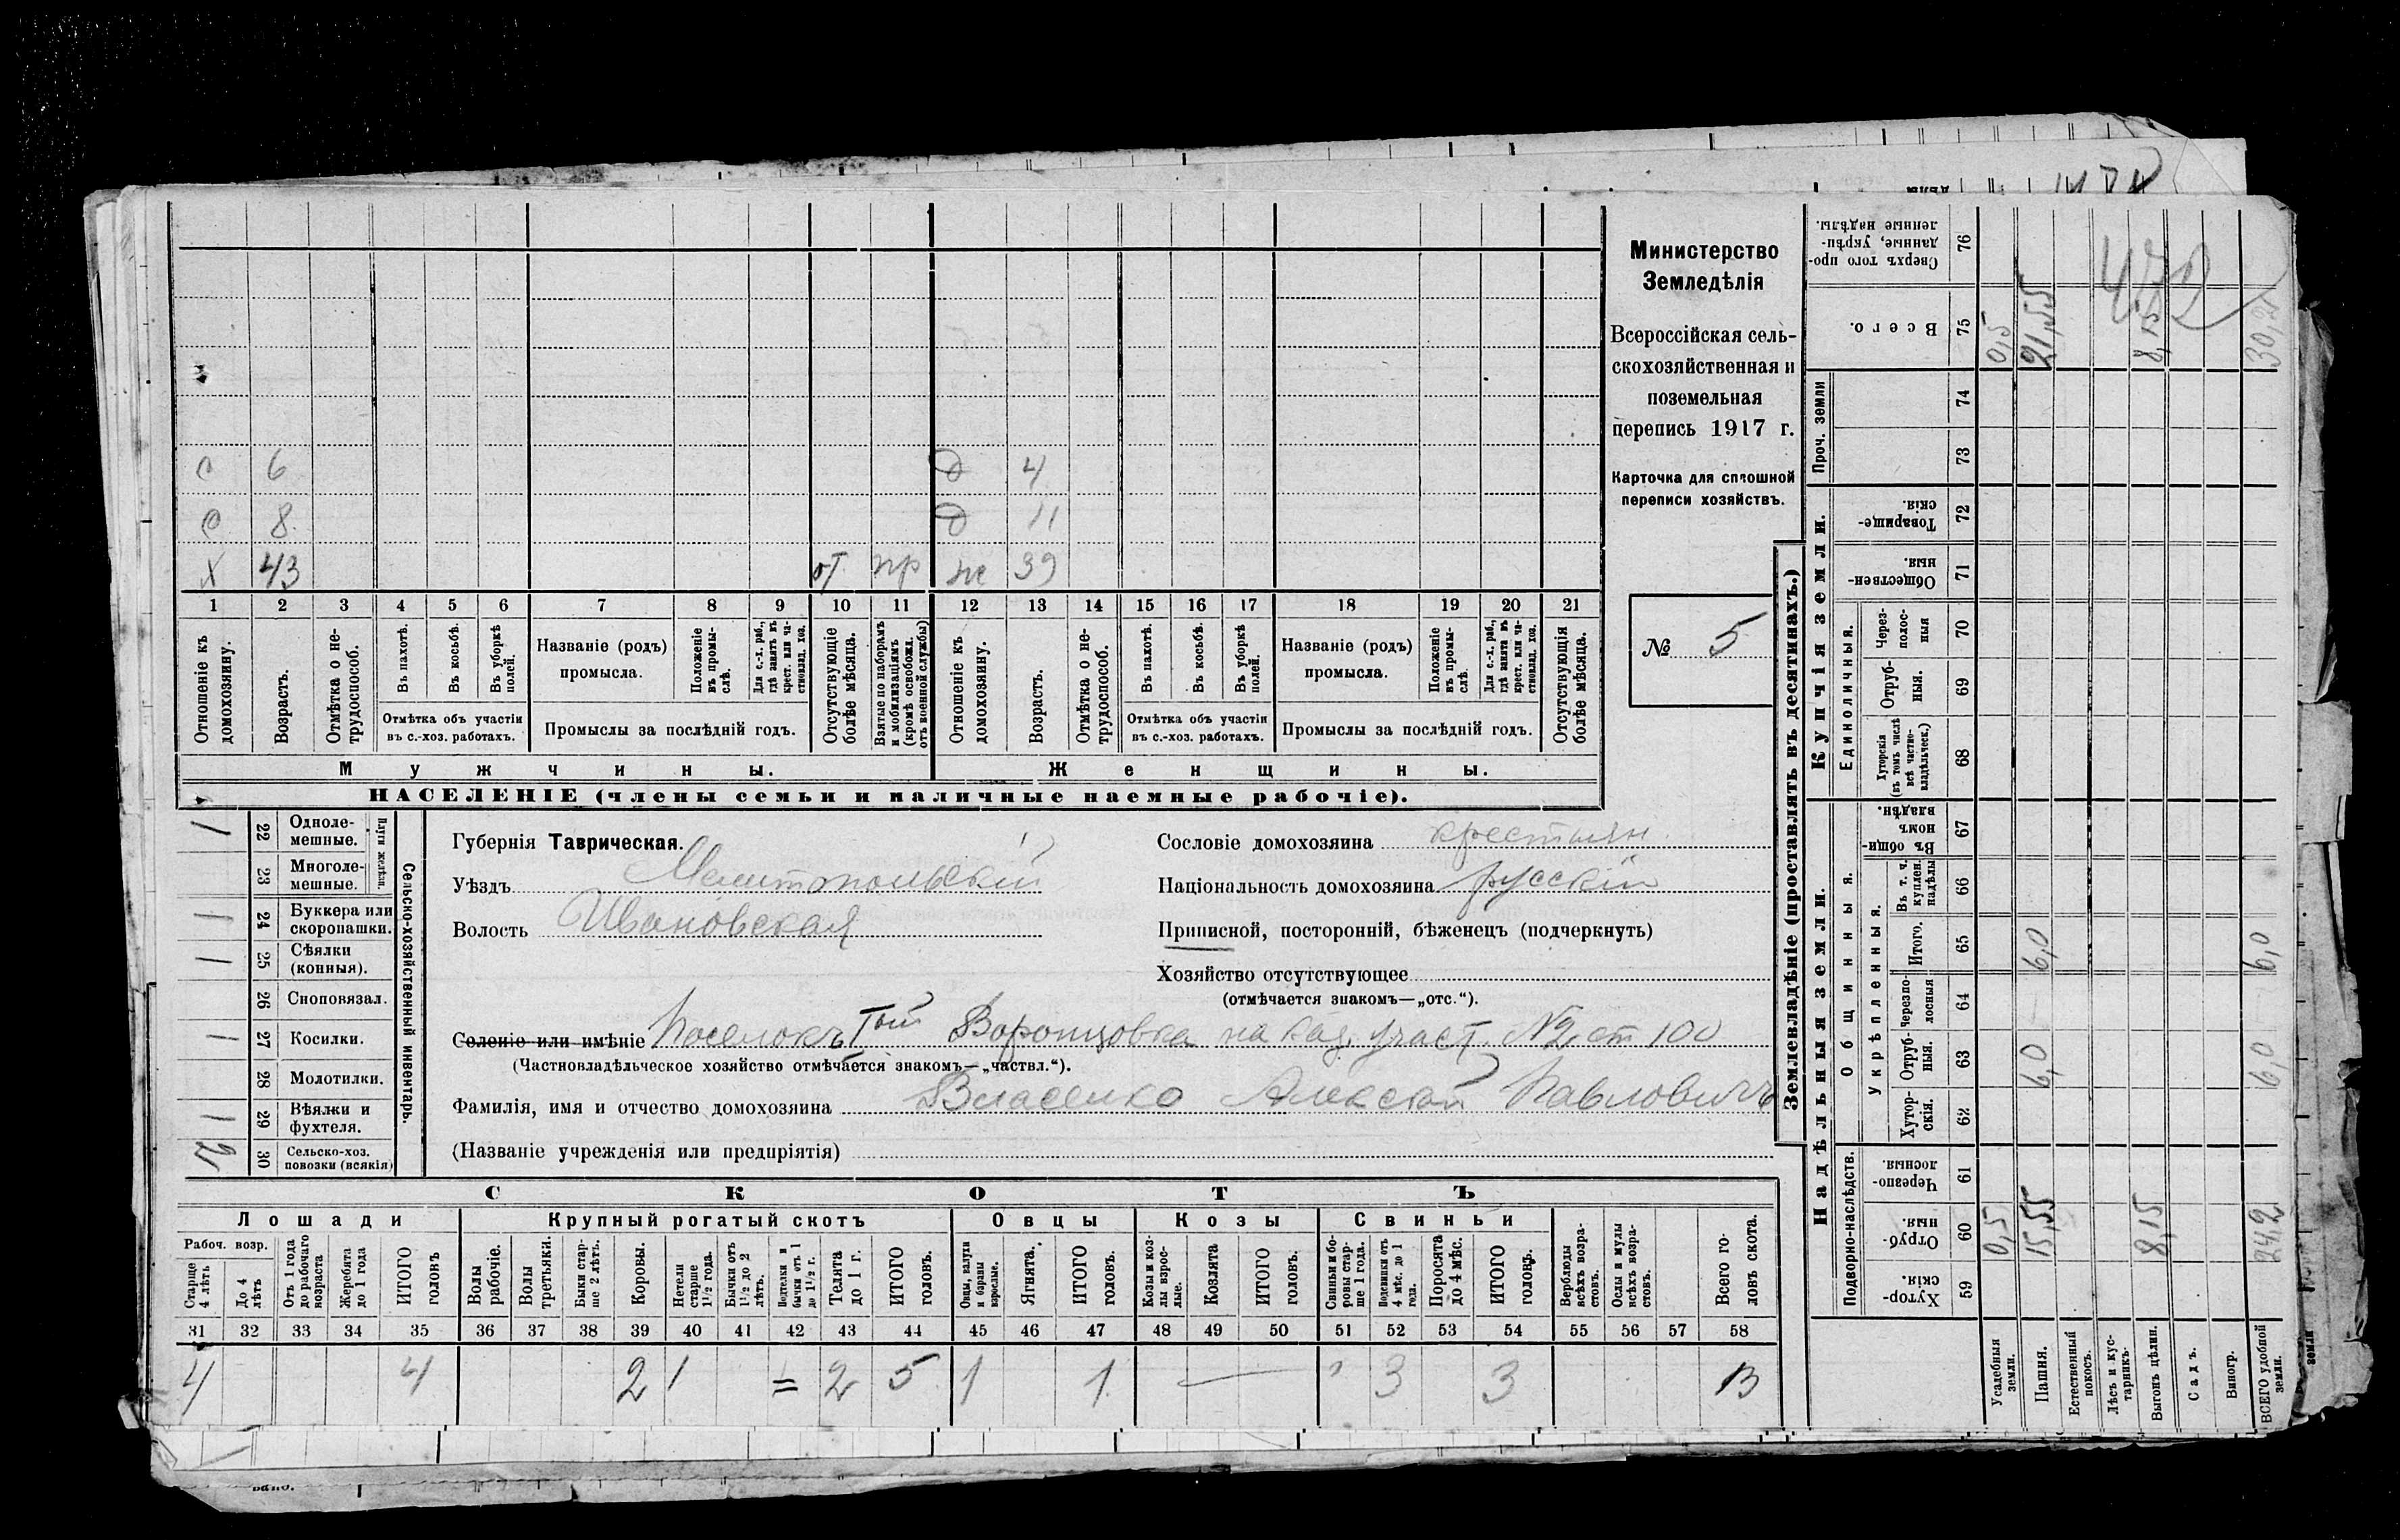 Министерство
Земледѣлія
Всероссійская сель-
скохозяйственная и
поземельная
перепись 1917 г.
Карточка для сплошной
переписи хозяйствъ.
№ 5
с 6 д 4
с 8 д 11
х 43 от пр же 39
1 2 3 4 5 6 7 8 9 10 11 12 13 14 15 16 17 18 19 20 21
Отношеніе къ домохозяину.
Возрастъ.
Отмѣтка о не-трудоспособ.
Въ пахотѣ.
Въ косьбѣ.
Въ уборкѣ полей.
Отмѣтка объ участіи
въ с.-хоз. работахъ.
Названіе (родъ)
промысла.
Положеніе въ промы-слѣ.
Для с.-х. раб., гдѣ занятъ въ крест. или ча-стновлад. хоз.
Промыслы за послѣдній годъ.
Отсутствующіе болѣе мѣсяца.
Взятые по наборамъ и мобилизаціямъ (кромѣ освобожд. отъ военной службы)
Отношеніе къ домохозяину.
Возрастъ.
Отмѣтка о не-трудоспособ.
Въ пахотѣ.
Въ косьбѣ.
Въ уборкѣ полей.
Отмѣтка объ участіи
въ с.-хоз. работахъ.
Названіе (родъ)
промысла.
Положеніе въ промы-слѣ.
Для с.-х. раб., гдѣ занята въ крест. или ча-стновлад. хоз.
Промыслы за послѣдній годъ.
Отсутствующія болѣе мѣсяца.
Мужчины. Женщины.
НАСЕЛЕНІЕ (члены семьи и наличные наемные рабочіе).
Сельско-хозяйственный инвентарь.
Плуги желѣзн.
1 22 Одноле-мешные.
23 Многоле-мешные.
1 24 Буккера или скоропашки.
1 25 Сѣялки (конныя).
26 Сноповязал.
1 27 Косилки.
28 Молотилки.
1 29 Вѣялки и фухтеля.
2 30 Сельско-хоз. повозки (всякія)
Губернія Таврическая.
Уѣздъ Мелитопольскій
Волость Ивановская
Сословіе домохозяина крестьян.
Національность домохозяина русскій
Приписной, посторонній, бѣженецъ (подчеркнуть)
Хозяйство отсутствующее
(отмѣчается знакомъ—„отс.“).
Селеніе или имѣніе Поселокъ Воронцовка на каз. участ. №2 ст 100
(Частновладѣльческое хозяйство отмѣчается знакомъ—„частвл.“).
Фамилія, имя и отчество домохозяина Власенко Алексей Павловичъ
(Названіе учрежденія или предпріятія)
СКОТЪ
Лошади Крупный рогатый скотъ Овцы Козы Свиньи
Рабоч. возр.
Старше 4 лѣтъ
До 4 лѣтъ
Отъ 1 года до рабочаго возраста
Жеребята до 1 года
ИТОГО головъ
Волы рабочіе.
Волы третьяки.
Быки стар-ше 2 лѣтъ.
Коровы.
Нетели старше 1½ года.
Бычки отъ 1½ до 2 лѣтъ.
Подтелки и бычки отъ 1 до 1½ г.
Телята до 1 г.
ИТОГО головъ.
Овцы, валухи и бараны взрослые.
Ягнята.
ИТОГО головъ.
Козы и коз-лы взрос-лые.
Козлята
ИТОГО головъ.
Свиньи и бо-ровы стар-ше 1 года.
Подсвинки отъ 4 мѣс. до 1 года.
Поросята до 4 мѣс.
ИТОГО головъ.
Верблюды всѣхъ возра-стовъ.
Ослы и мулы всѣхъ возра-стовъ.
Всего го-ловъ скота.
31 32 33 34 35 36 37 38 39 40 41 42 43 44 45 46 47 48 49 50 51 52 53 54 55 56 57 58
4 4 2 1 = 2 5 1 1 — 3 3 13
Землевладѣніе (проставлять въ десятинахъ.)
Надѣльныя земли.
Подворно-наслѣдств.
Хутор-скія. 59
Отруб-ныя. 60
Черезпо-лосныя. 61
Общинныя.
Укрѣпленныя.
Хутор-скія. 62
Отруб-ныя. 63
Черезпо-лосныя 64
Итого. 65
Въ т. ч. куплен. надѣлы 66
Въ общи-номъ владѣн. 67
Купчія земли.
Единоличныя.
Хуторскія (въ томъ числѣ всѣ частно-владѣльческ.) 68
Отруб-ныя. 69
Через-полос-ныя 70
Обществен-ныя. 71
Товарище-скія. 72
Проч. земли
73 74
Всего. 75
Сверхъ того про-данные, укрѣп-ленные надѣлы. 76
Усадебныя земли. 0,5 0,5
Пашня. 15,55 6,0 6,0 21,55
Естественный покосъ.
Лѣсъ и кус-тарникъ.
Выгонъ цѣлин. 8,15 8,15
Садъ.
Виногр.
ВСЕГО удобной земли. 24,2 6,0 6,0 30,2
земли